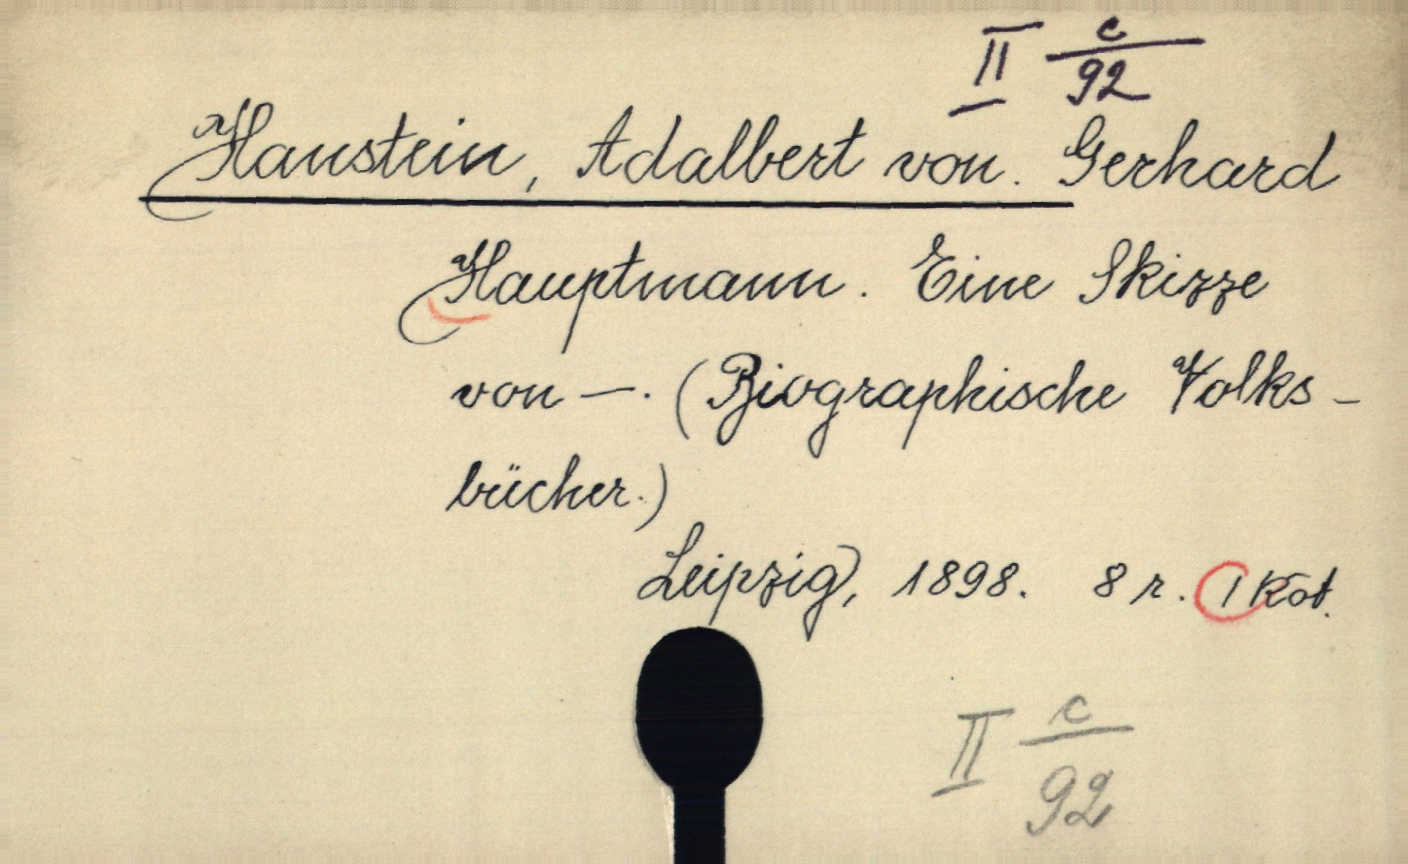 II c/92
Hanstein, Adalbert von. Gerhard
Hauptmann. Eine Skizze
von —. (Biographische Volks-
bücher.)
Leipzig, 1898. 8 r. 1 Köt.
II c/92